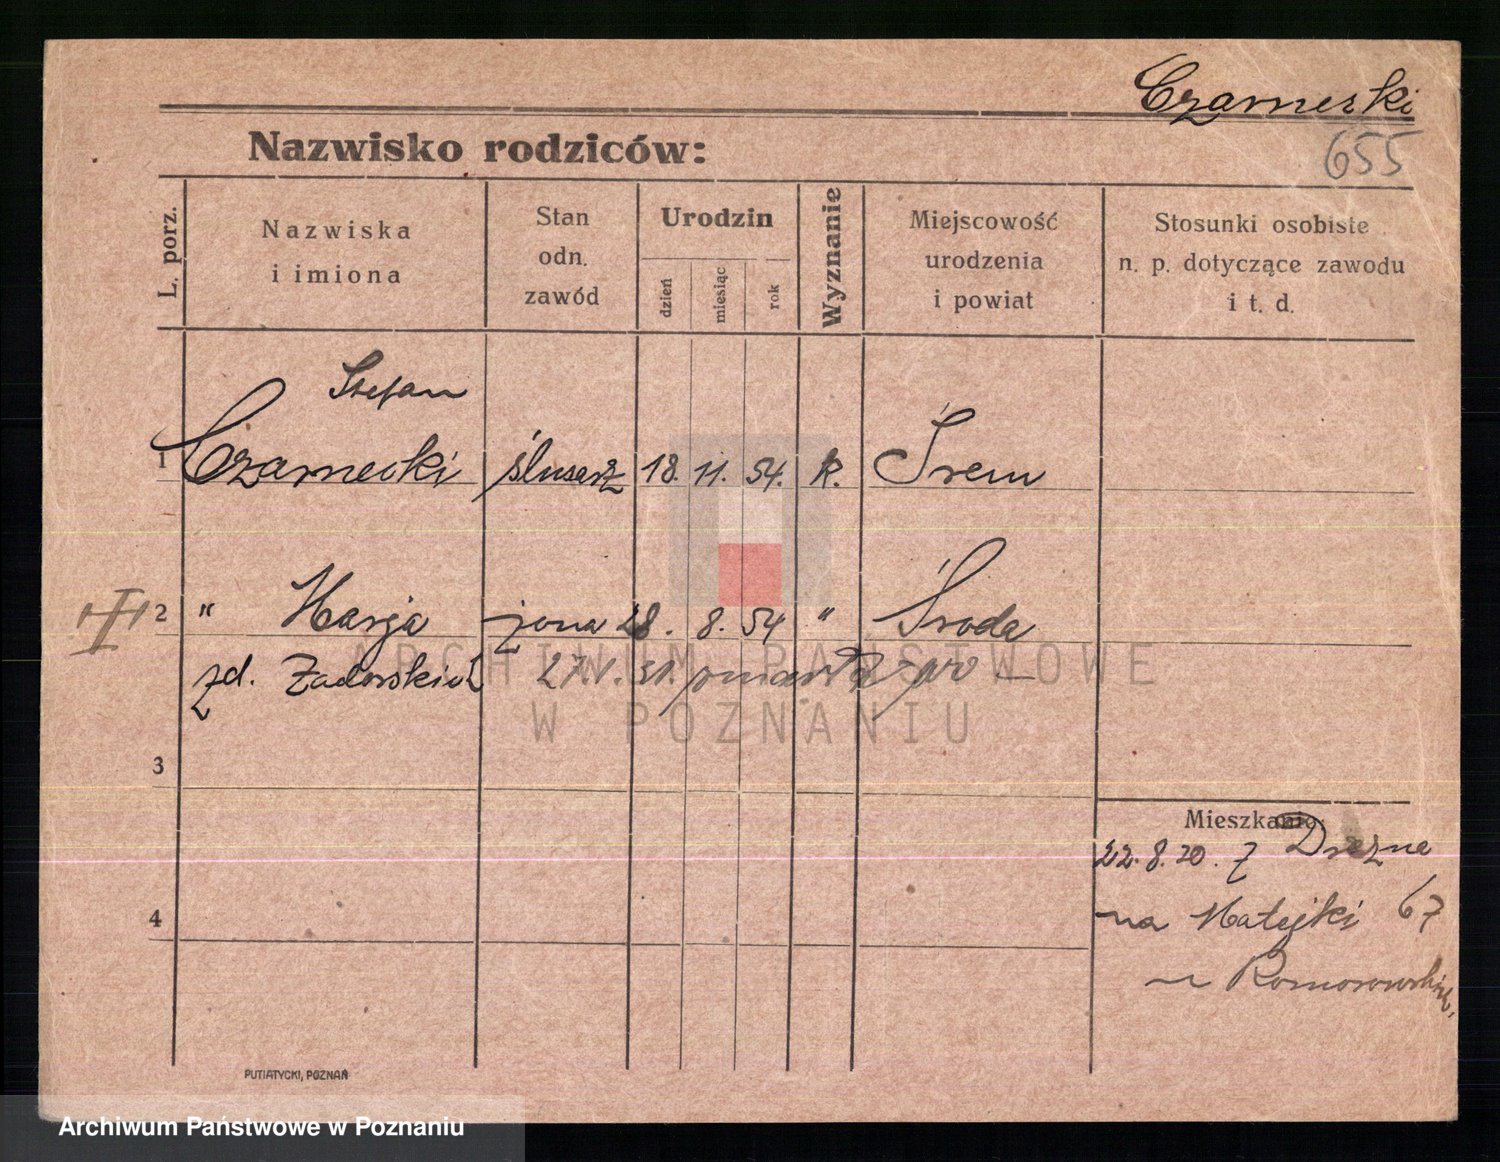 Czarnecki
655
Nazwisko rodziców:
L. porz.
Nazwiska
i imiona
Stan
odn.
zawód
Urodzin
dzień
miesiąc
rok
Wyznanie
Miejscowość
urodzenia
i powiat
Stosunki osobiste
n. p. dotyczące zawodu
i t. d.
Stefan
1 Czarnecki ślusarz 18. 11. 54. k. Śrem
2 " Marja żona 28. 8. 54 " Środa
zd. 27.1.31. zmarła
3
Mieszkanie:
22.8.20. z Drezna
4
na Matejki 67
PUTIATYCKI, POZNAŃ
ARCHIWUM PAŃSTWOWE
W POZNANIU
Archiwum Państwowe w Poznaniu